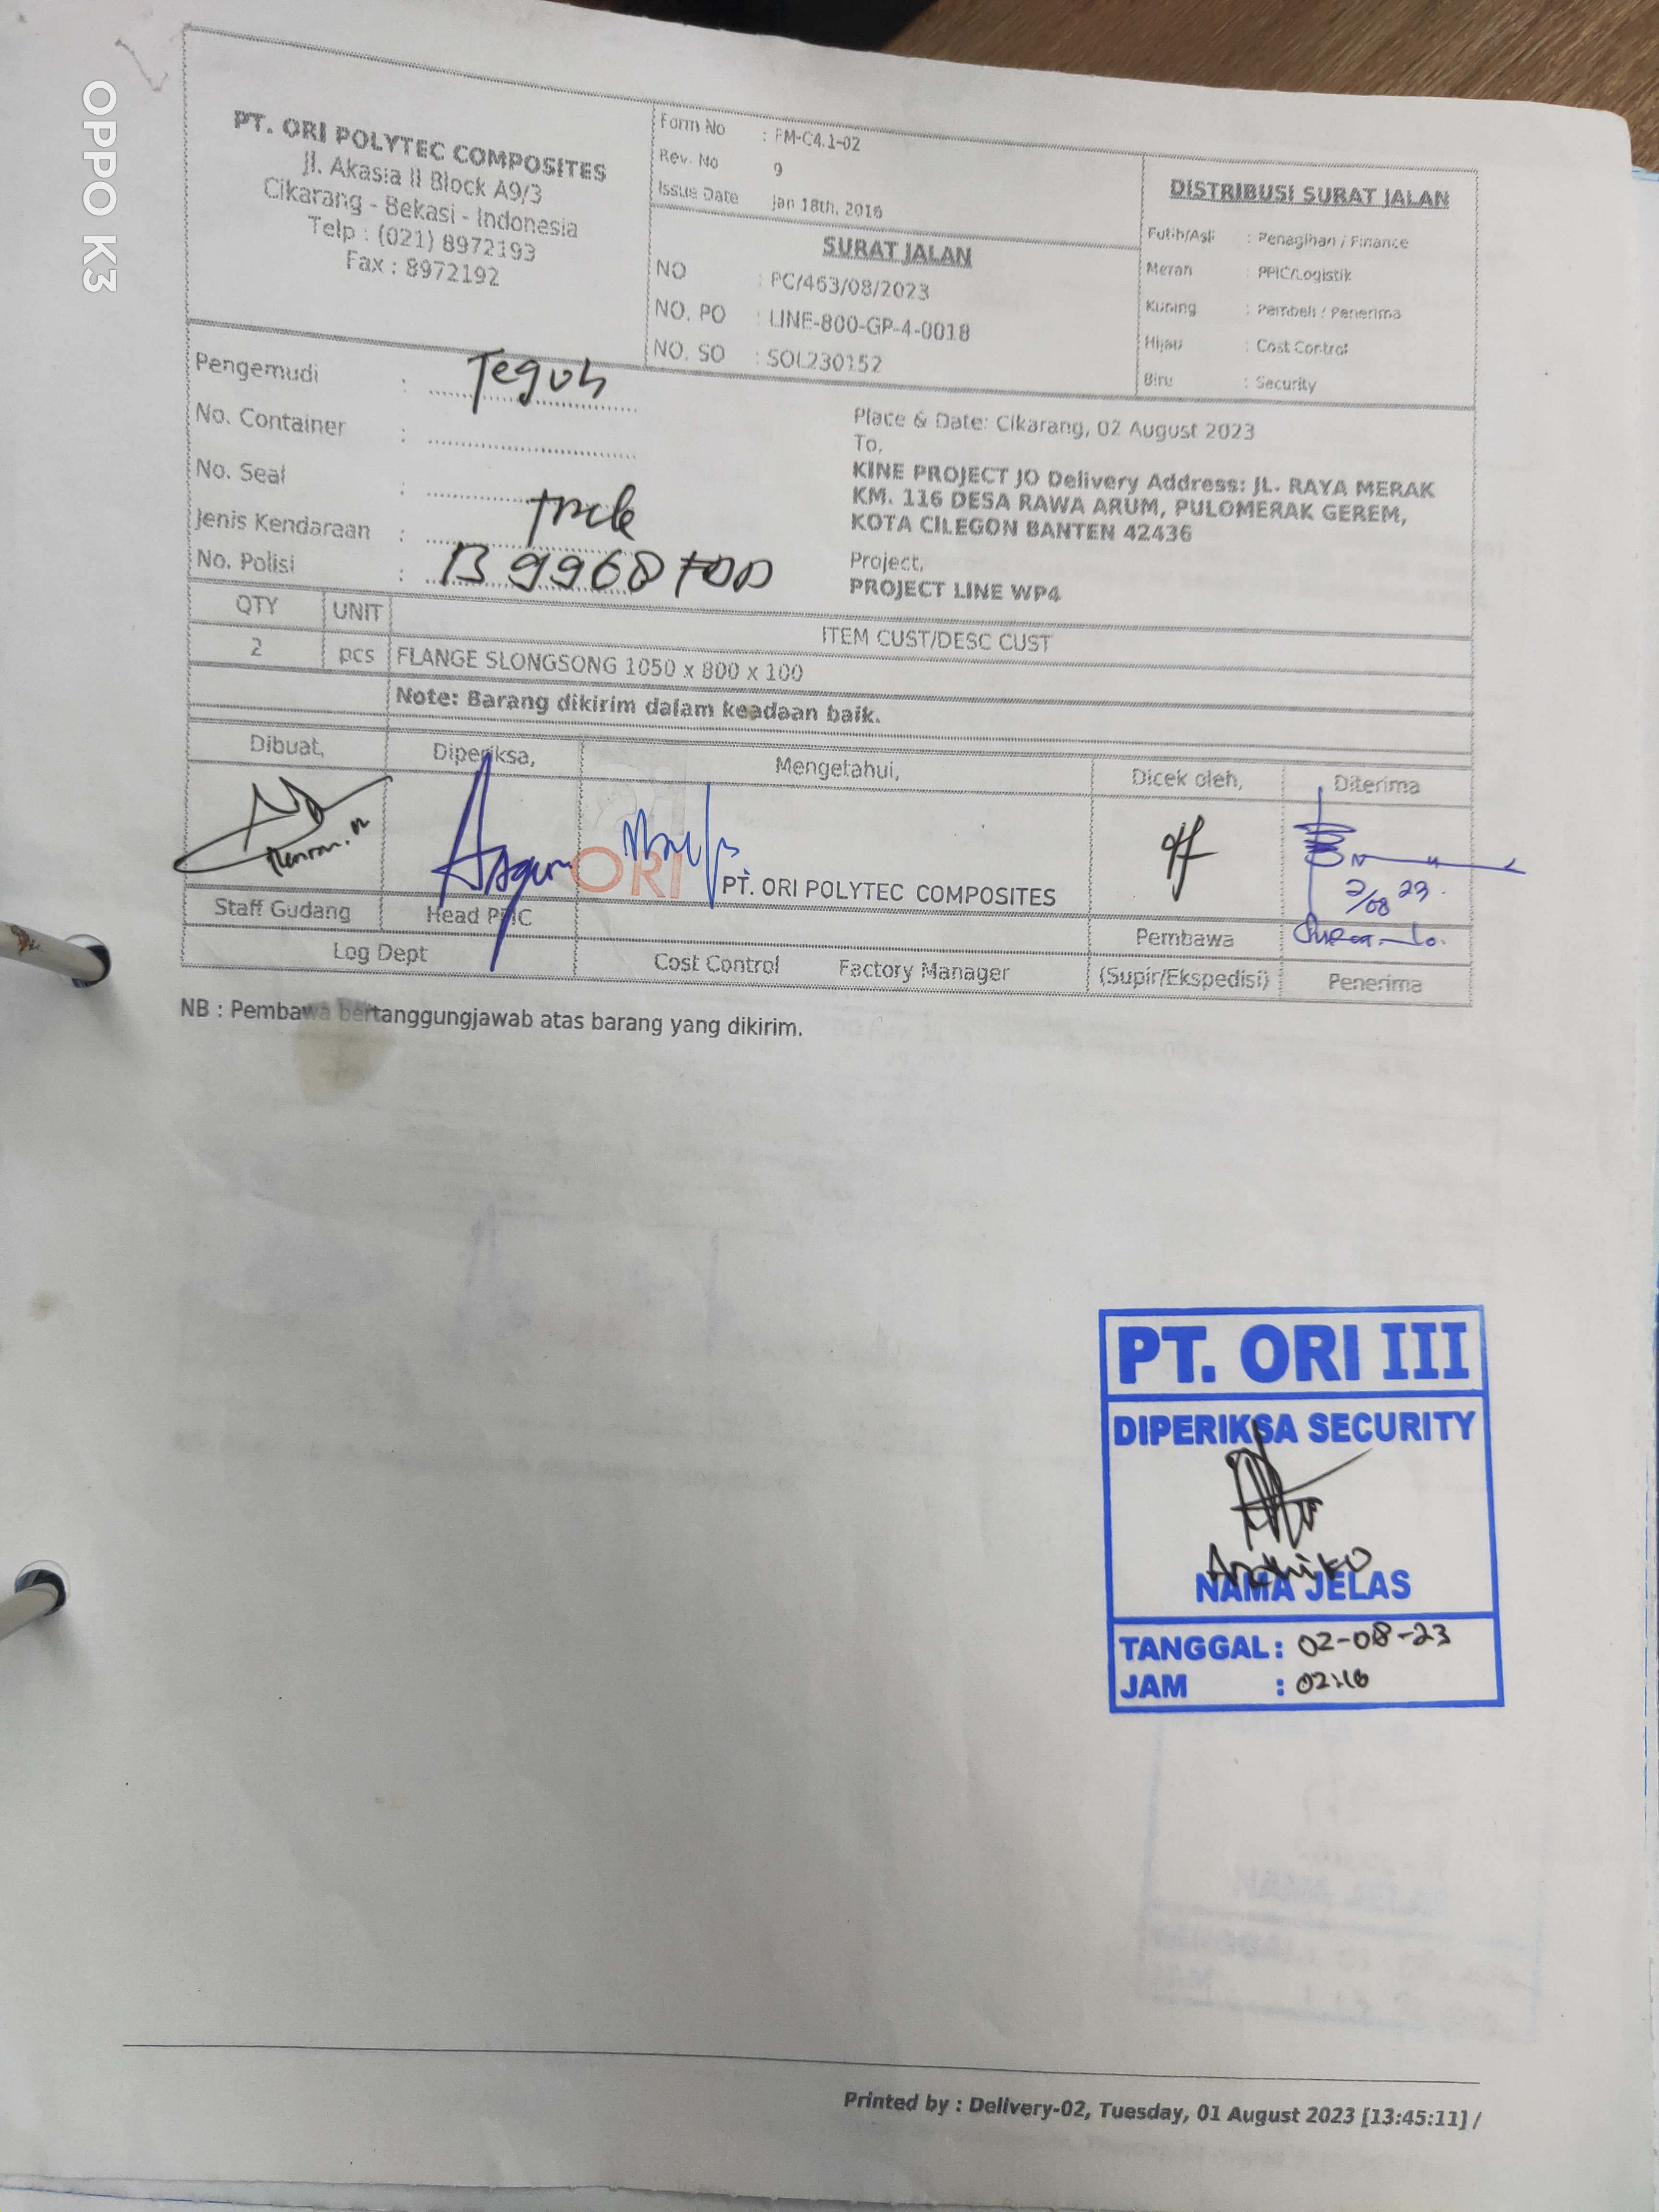 OPPO K3
PT. ORI POLYTEC COMPOSITES
Jl. Akasia II Block A9/3
Cikarang - Bekasi - Indonesia
Telp : (021) 8972193
Fax : 8972192
Form No : FM-C4.1-02
Rev. No 9
Issue Date Jan 18th, 2016
SURAT JALAN
NO : PC/463/08/2023
NO. PO : LINE-800-GP-4-0018
NO. SO : SOL230152
DISTRIBUSI SURAT JALAN
Putih/Asli : Penagihan / Finance
Merah : PPIC/Logistik
Kuning : Pembeli / Penerima
Hijau : Cost Control
Biru : Security
Pengemudi : Teguh
No. Container :
No. Seal :
Jenis Kendaraan : truck
No. Polisi : B 9968
Place & Date: Cikarang, 02 August 2023
To,
KINE PROJECT JO Delivery Address: JL. RAYA MERAK
KM. 116 DESA RAWA ARUM, PULOMERAK GEREM,
KOTA CILEGON BANTEN 42436
Project,
PROJECT LINE WP4
QTY UNIT ITEM CUST/DESC CUST
2 pcs FLANGE SLONGSONG 1050 x 800 x 100
Note: Barang dikirim dalam keadaan baik.
Dibuat, Diperiksa, Mengetahui, Dicek oleh, Diterima
ORI PT. ORI POLYTEC COMPOSITES
2/08 23.
Staff Gudang Head PPIC Pembawa
Log Dept Cost Control Factory Manager (Supir/Ekspedisi) Penerima
NB : Pembawa bertanggungjawab atas barang yang dikirim.
PT. ORI III
DIPERIKSA SECURITY
Andhiko
NAMA JELAS
TANGGAL : 02-08-23
JAM : 02:10
Printed by : Delivery-02, Tuesday, 01 August 2023 [13:45:11] /